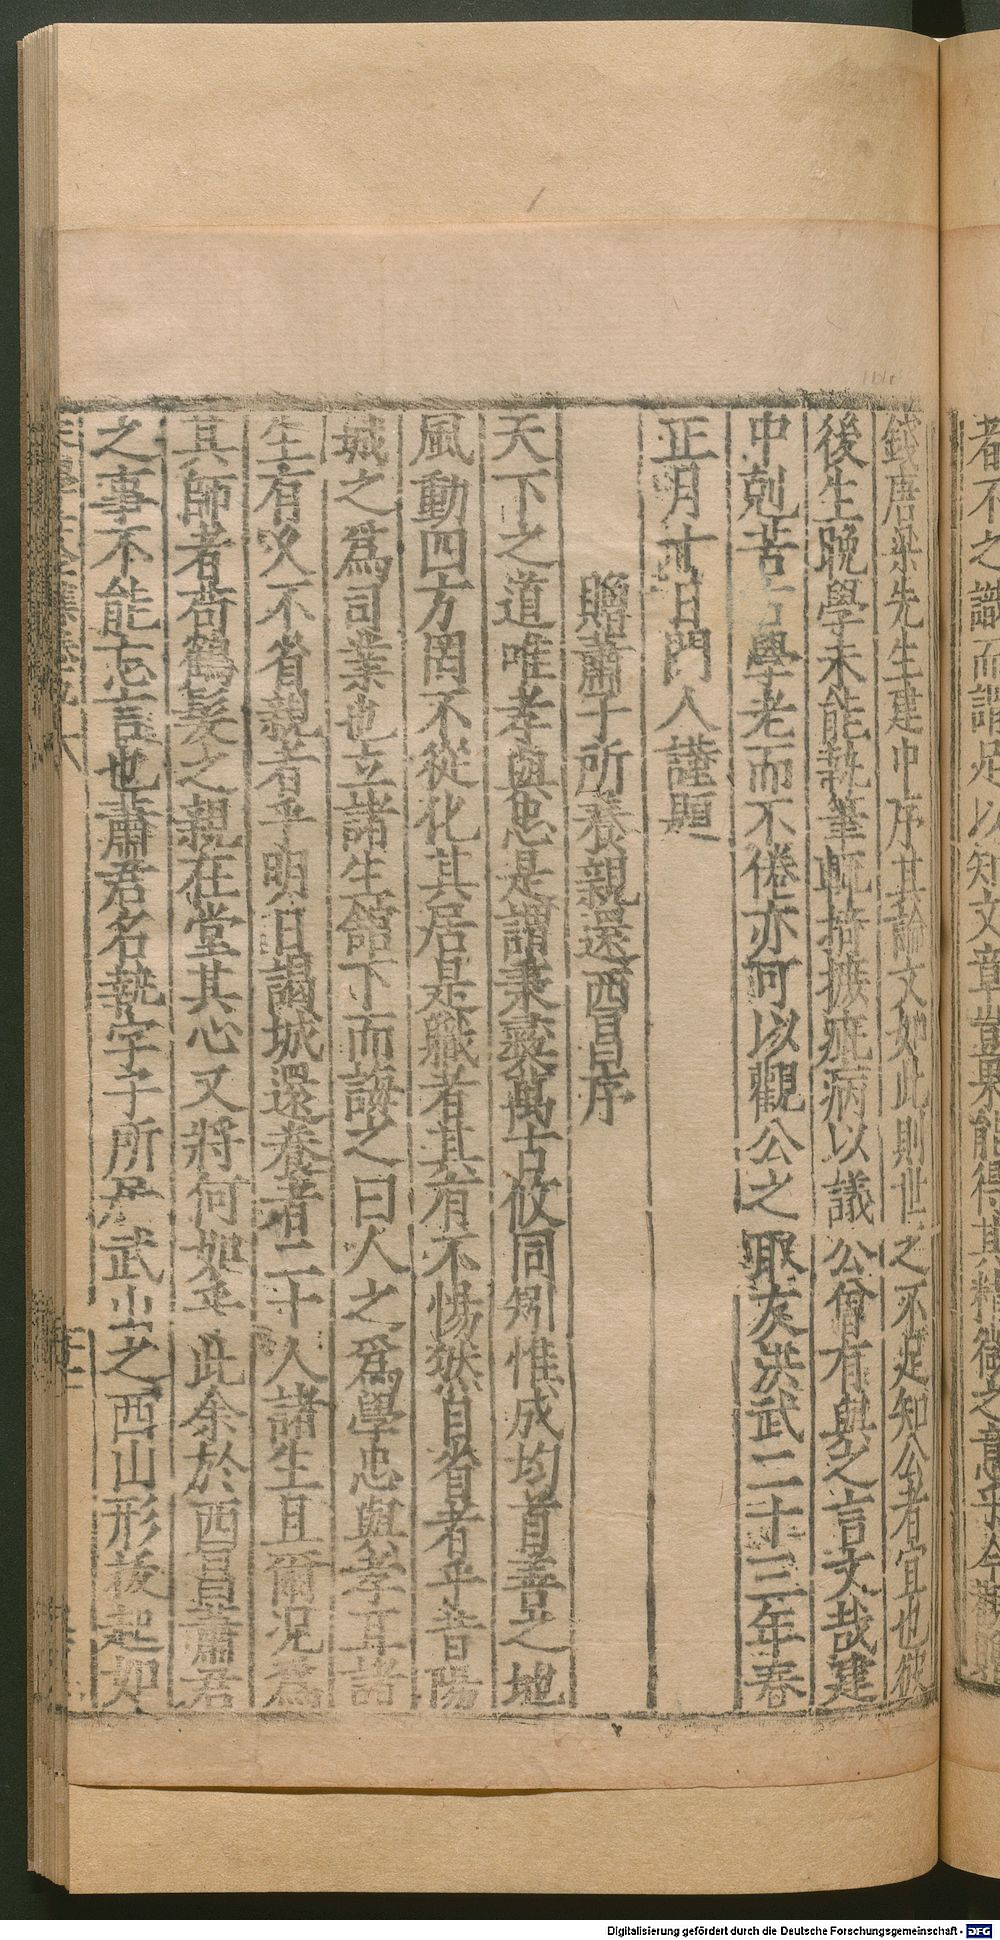 者不之識而謂足以知文章豈果能得其精微之意乎今觀
錢唐梁先生建中序其論文如此則世之不足知公者宜也彼
後生晚學未能執筆輒掎摭疵病以議公曾有與之言文哉建
中剋苦古學老而不倦亦可以觀公之取友洪武二十三年春
正月十日門人謹題
贈蕭子所養親還西昌序
天下之道唯孝與忠是謂秉彝萬古攸同矧惟成均首善之地
風動四方罔不從化其居是職者其有不惕然自省者乎昔陽
城之為司業也立諸生館下而誨之曰人之為學忠與孝耳諸
生有久不省親者乎明日謁城還養者二十人諸生且爾況為
其師者苟鶴髮之親在堂其心又將何如乎此余於西昌蕭君
之事不能忘言也蕭君名執字子所居武山之西山形拔起如